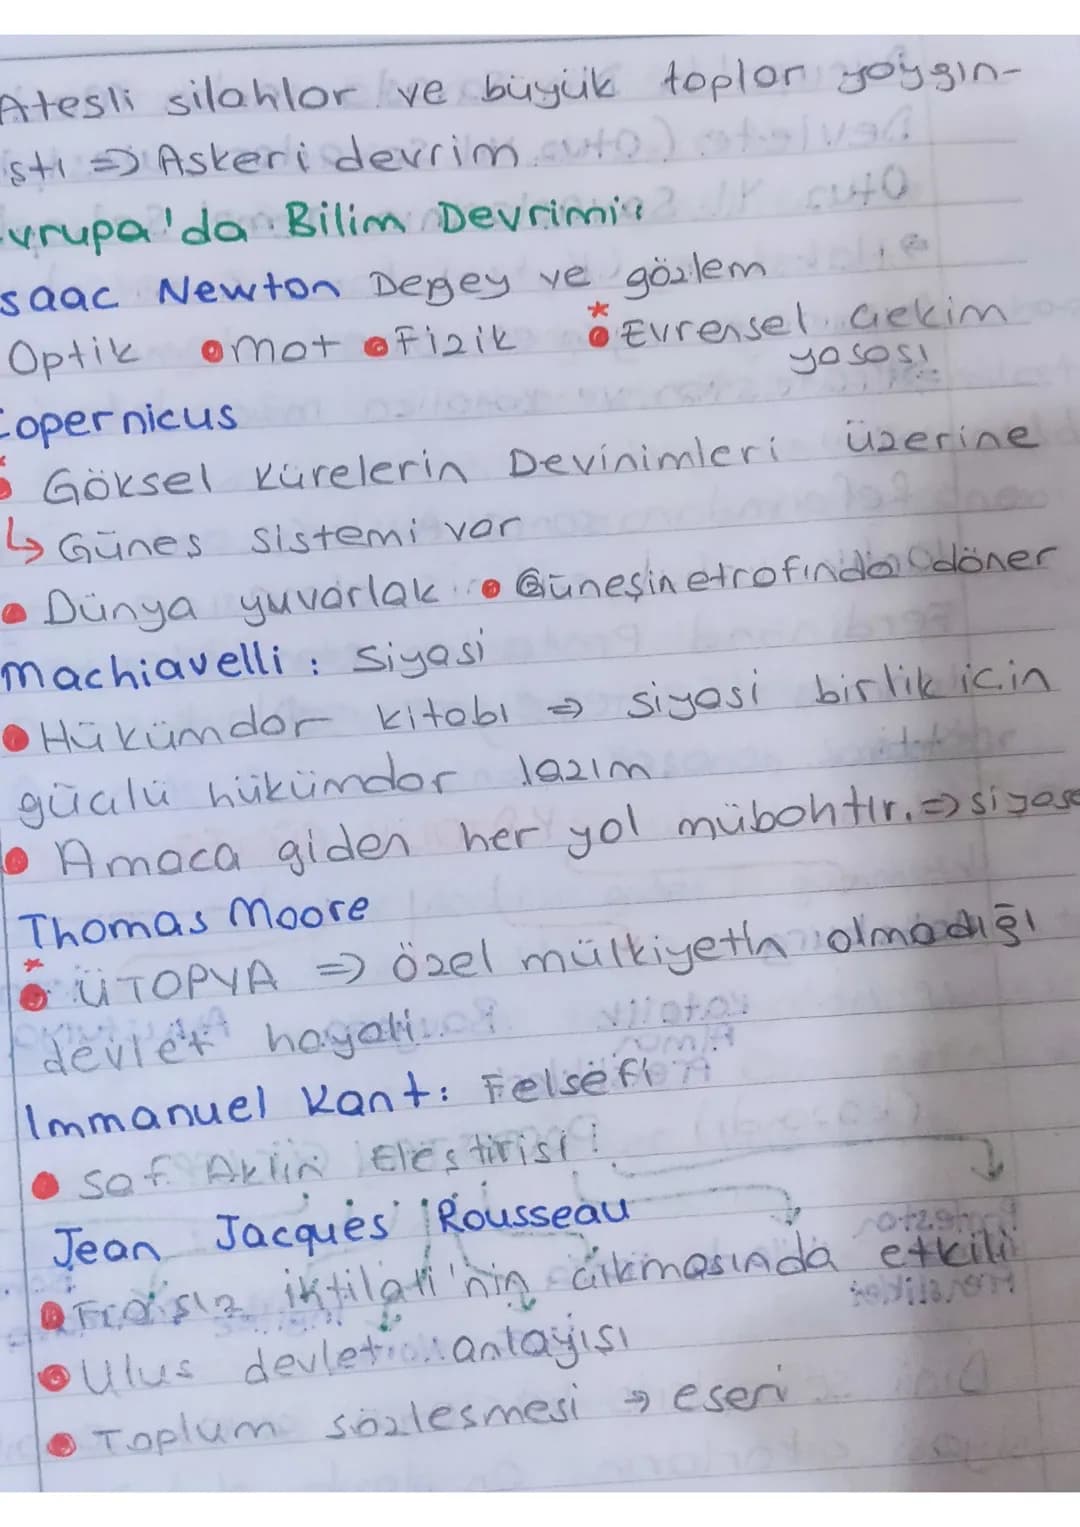 Atesli silahlar ve büyük toplar yaygın-
ştı => Askeri devrim
vrupa'da Bilim Devrimi:
saac Newton Deney ve gözlem
Optik • mat • Fizik • Evrensel Çekim
yasası
Copernicus
• Göksel Kürelerin Devinimleri üzerine
↳ Günes sistemi var
• Dünya yuvarlak • Güneşin etrafında döner
Machiavelli : Siyasi
• Hükümdar kitabı => siyasi birlik için
güçlü hükümdar lazım
• Amaca giden her yol mübahtır. => siyase
Thomas Moore
• ÜTOPYA => özel mülkiyetin olmadığı
devlet hayali
Immanuel Kant: Felsefi
• Saf Aklın Eleştirisi
Jean Jacques Rousseau
• Fransız iktilati'nin çıkmasında etkili
• Ulus devlet anlayışı
• Toplum sözlesmesi → eseri